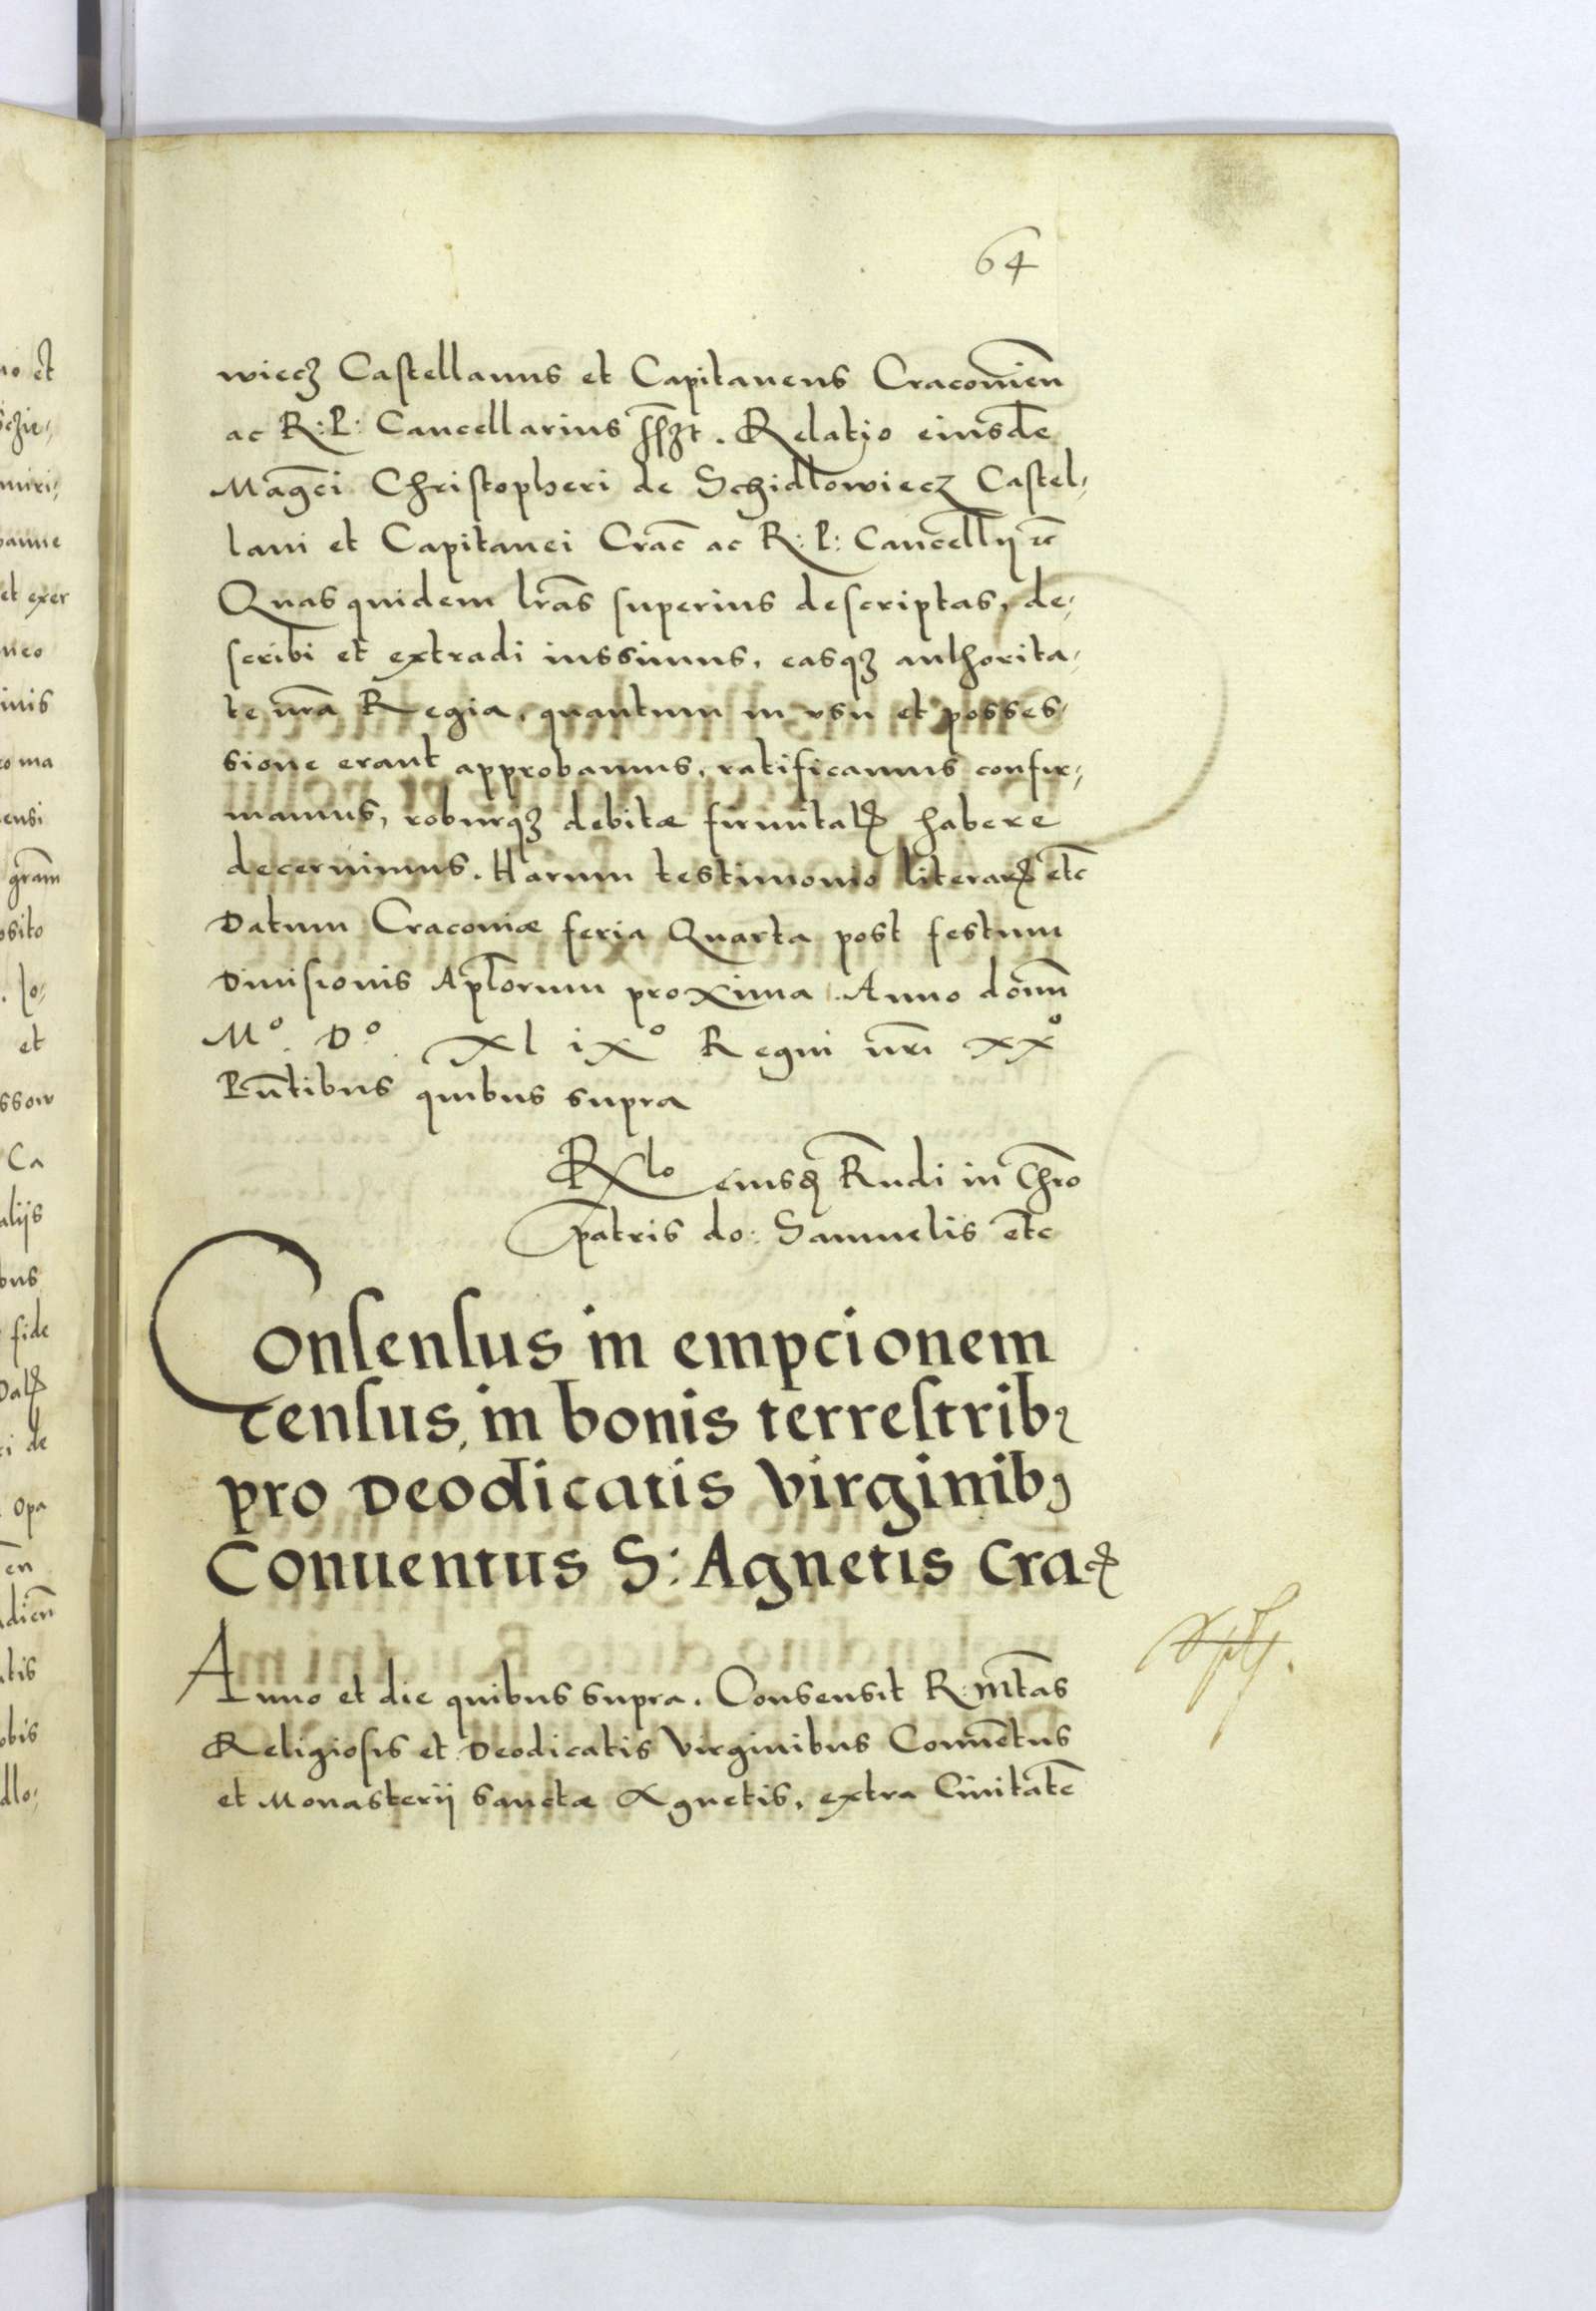 64
wiecz Castellanus et Capitaneus Cracouien̄
ac R: P: Cancellarius sszt. Relatio eiusdē
Magc̄i Christopheri de Schidlowiecz Castel-
lani et Capitanei Crac̄ ac R: P: Cancellīj ꝛc̄
Quas quidem lr̄as superius descriptas, de-
scribi et extradi iussimus, easqꝫ authorita-
te nr̄a Regia, quantum in vsu et posses-
sione erant approbamus, ratificamus confir-
mamus, roburqꝫ debitæ firmitatꝭ habere
decernimus. Harum testimonio literarꝝ etc̄
Datum Cracoviæ feria Quarta post festum
Diuisionis Apl̄orum proxima Anno domī
Mº. Dº. xl ixº Regni nr̄i xxº
Pn̄tibus quibus supra
Rlo eiusdꝭ Rn̄di in Chr̄o
patris do: Samuelis etc̄
Consensus in empcionem
census, in bonis terrestribꝫ
pro Deodicatis virginibꝫ
Conuentus S: Agnetis Craꝭ
Anno et die quibus supra. Consensit R. Mt̄as
Religiosis et Deodicatis virginibus Conuēntus
et Monasterij sanctæ Agnetis, extra Ciuitatē